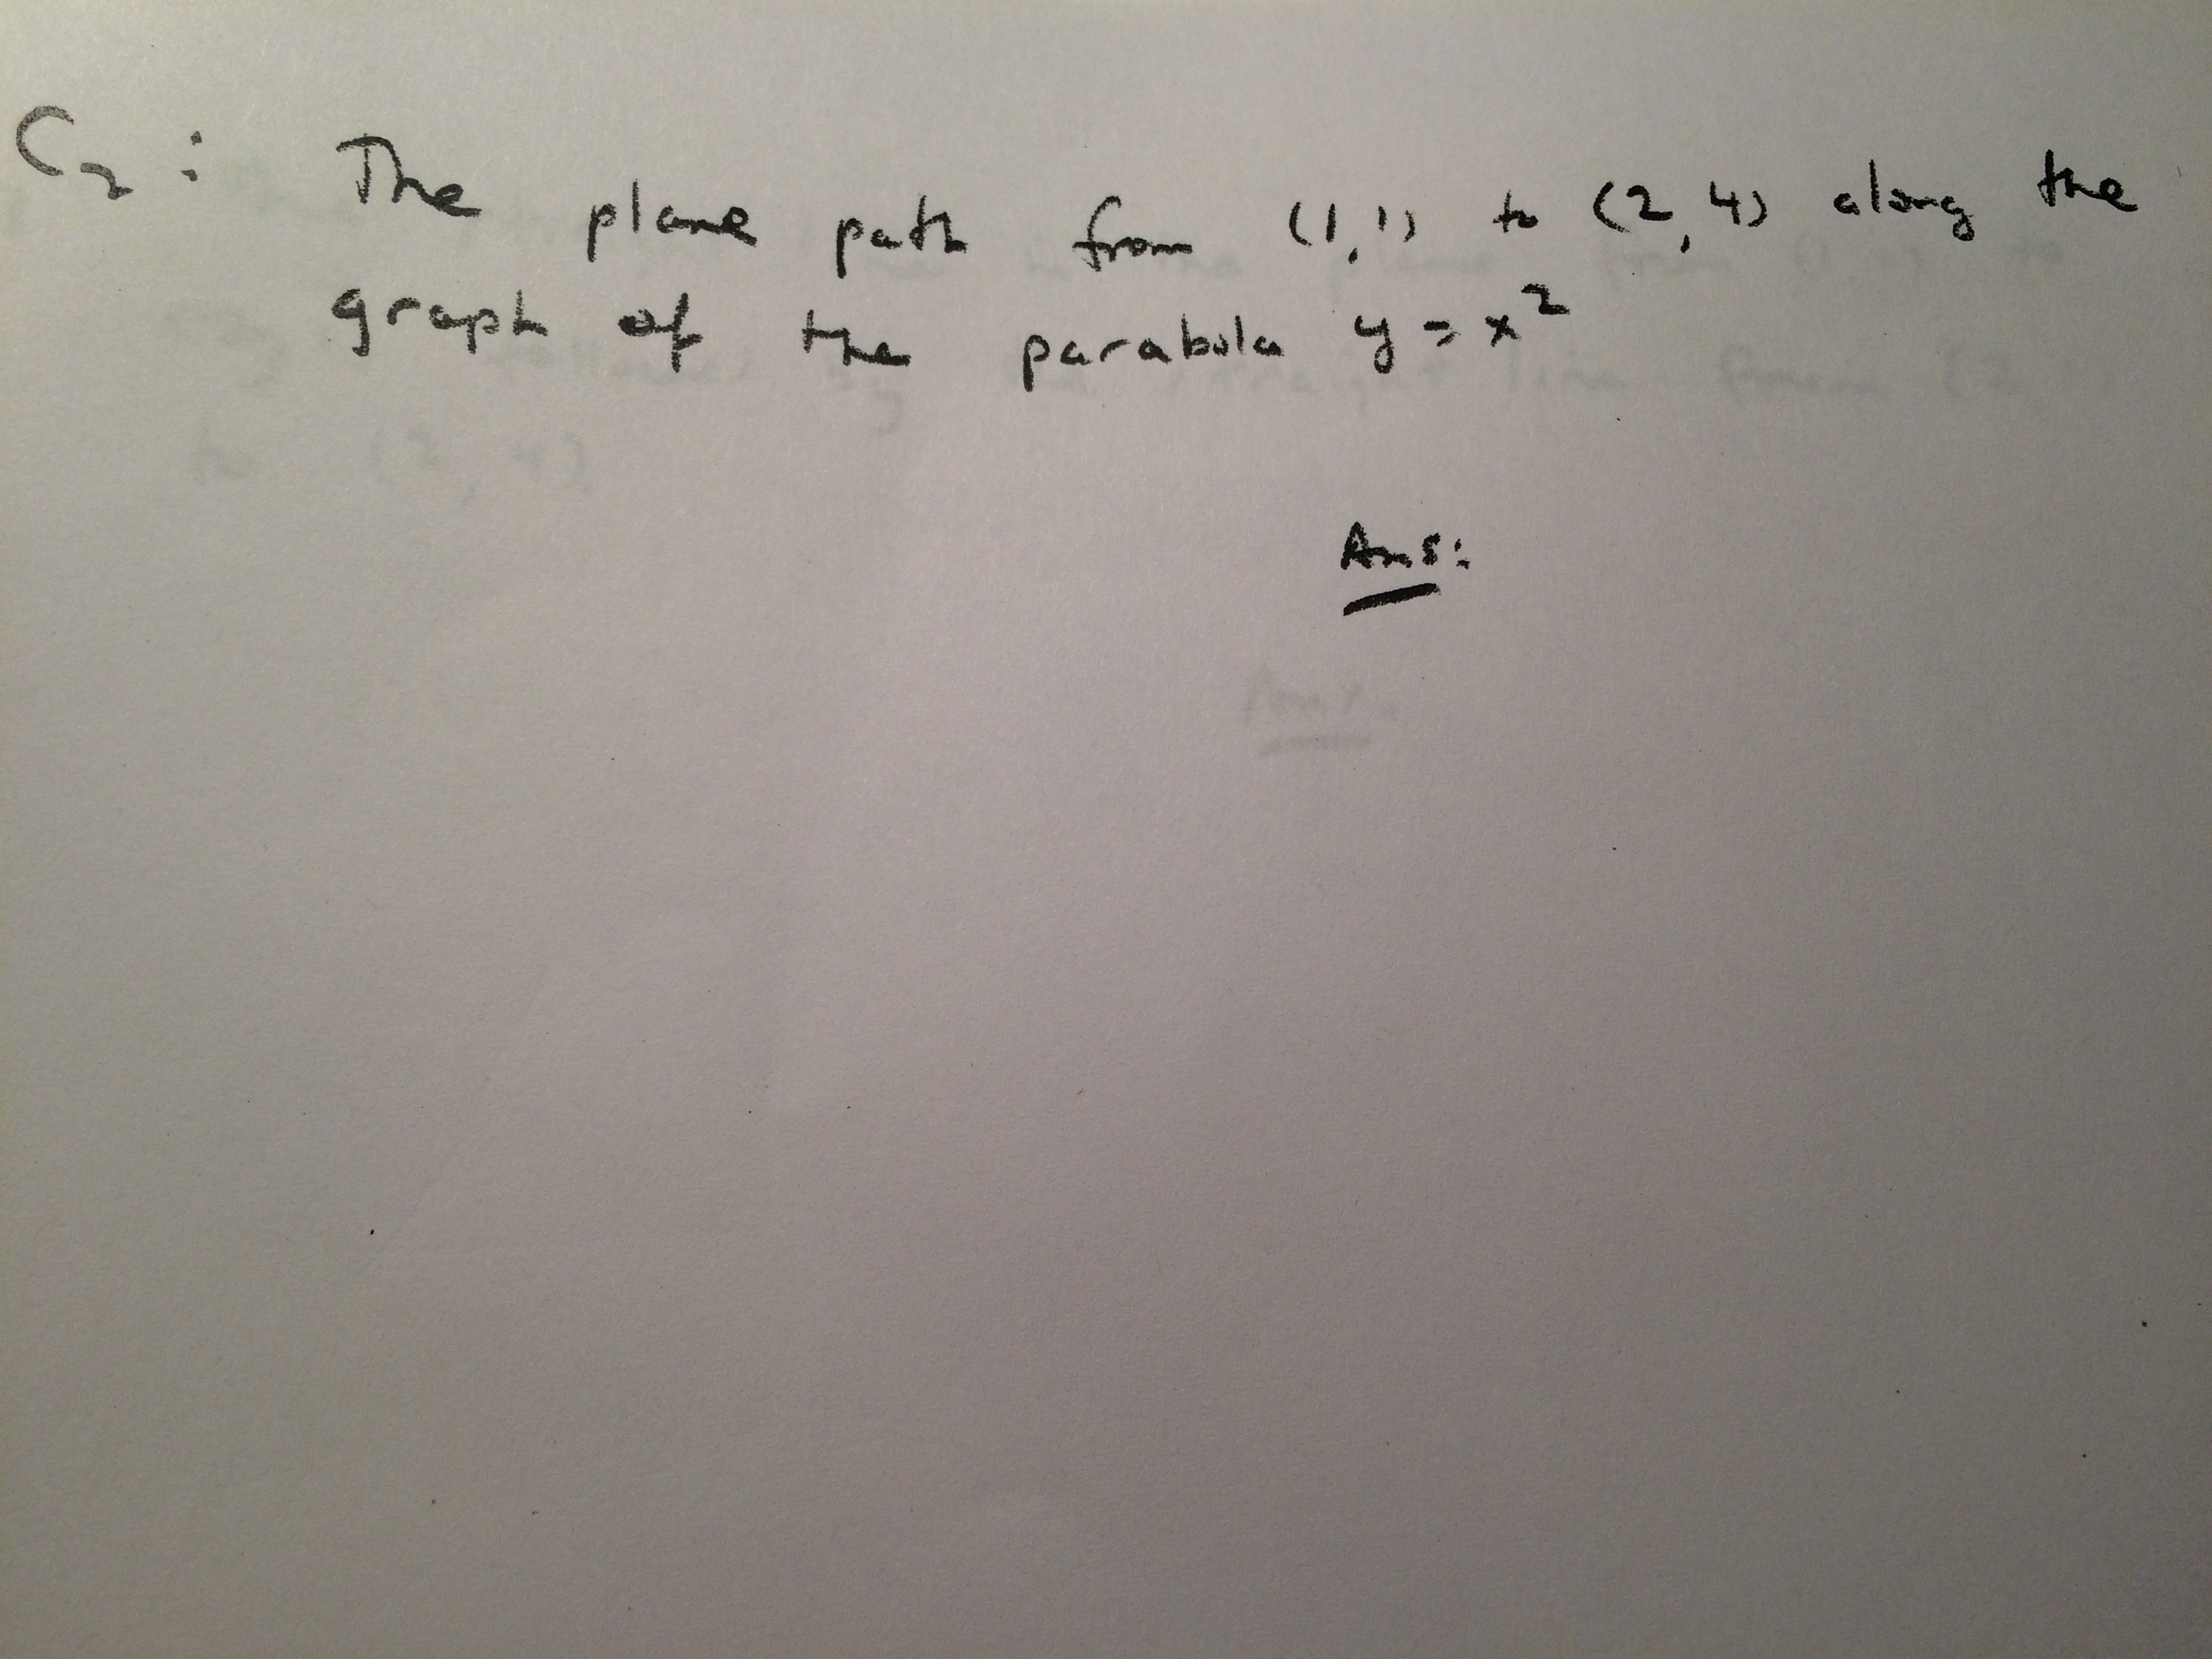 C₂: The plane path from (1,1) to (2,4) along the
graph of the parabola y = x²
Ans: